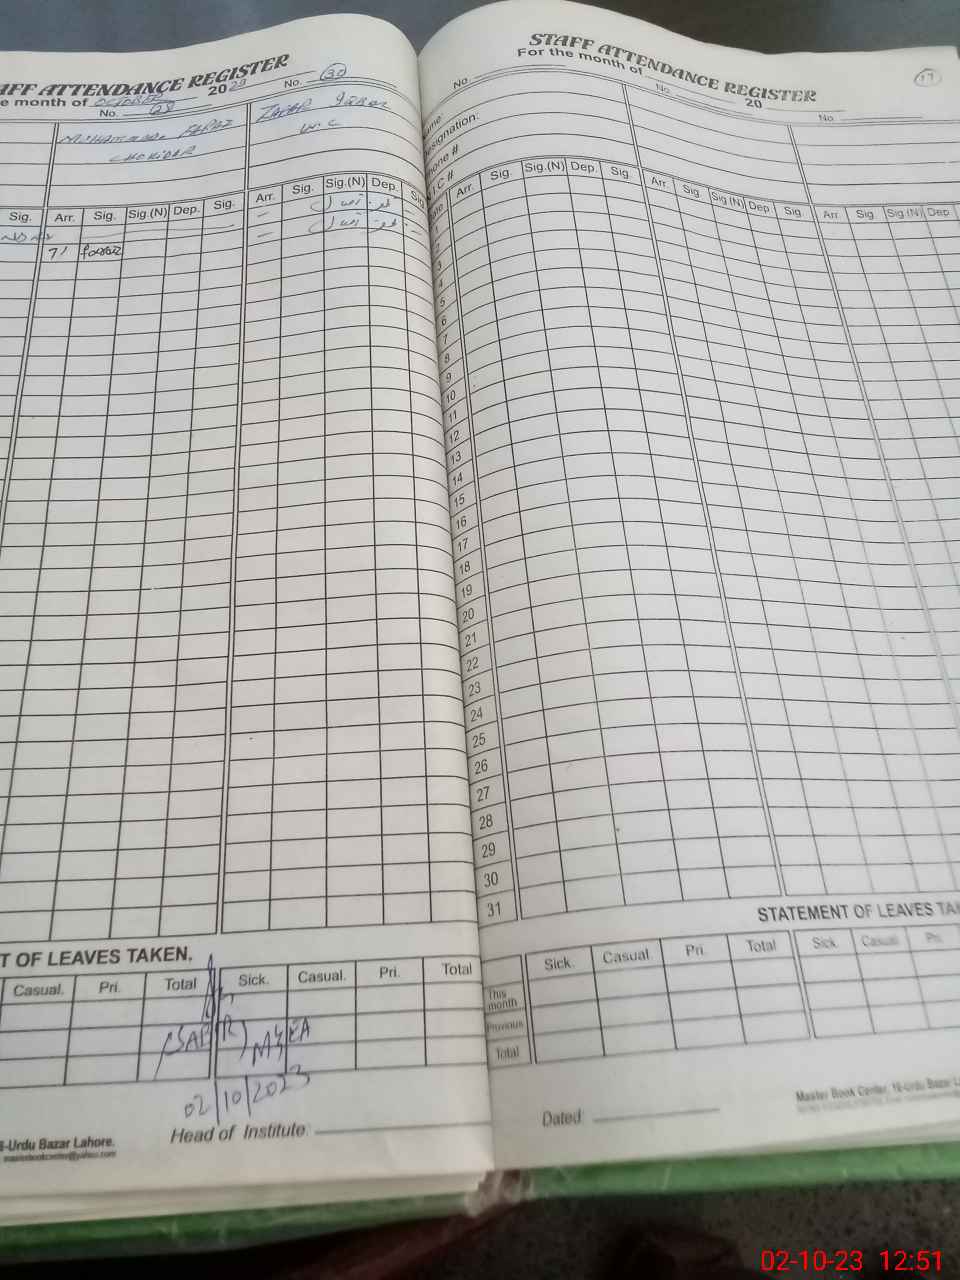 AFF ATTENDANCE REGISTER
e month of OCTOBER 2023
No. 29 No. 30
MUHAMMAD FARAZ ZAFAR IQBAL
CHOKIDAR W.C
Sig. Arr. Sig. Sig.(N) Dep. Sig. Arr. Sig. Sig.(N) Dep. Sig
7/ faraz
T OF LEAVES TAKEN.
Casual. Pri. Total Sick. Casual. Pri. Total
(SABIR) MEA
02/10/2023
Head of Institute:
6-Urdu Bazar Lahore.
masterbookcenter@yahoo.com
STAFF ATTENDANCE REGISTER
For the month of 20
17
No. No. No.
ame:
esignation:
hone #
I C #
ate Arr. Sig. Sig.(N) Dep. Sig. Arr. Sig. Sig.(N) Dep. Sig. Arr. Sig. Sig.(N) Dep
1
2
3
4
5
6
7
8
9
10
11
12
13
14
15
16
17
18
19
20
21
22
23
24
25
26
27
28
29
30
31
STATEMENT OF LEAVES TA
Sick. Casual. Pri. Total Sick. Casual Pri.
This month
Previous
Total
Dated
Master Book Center, 16-Urdu Bazar L
02-10-23 12:51